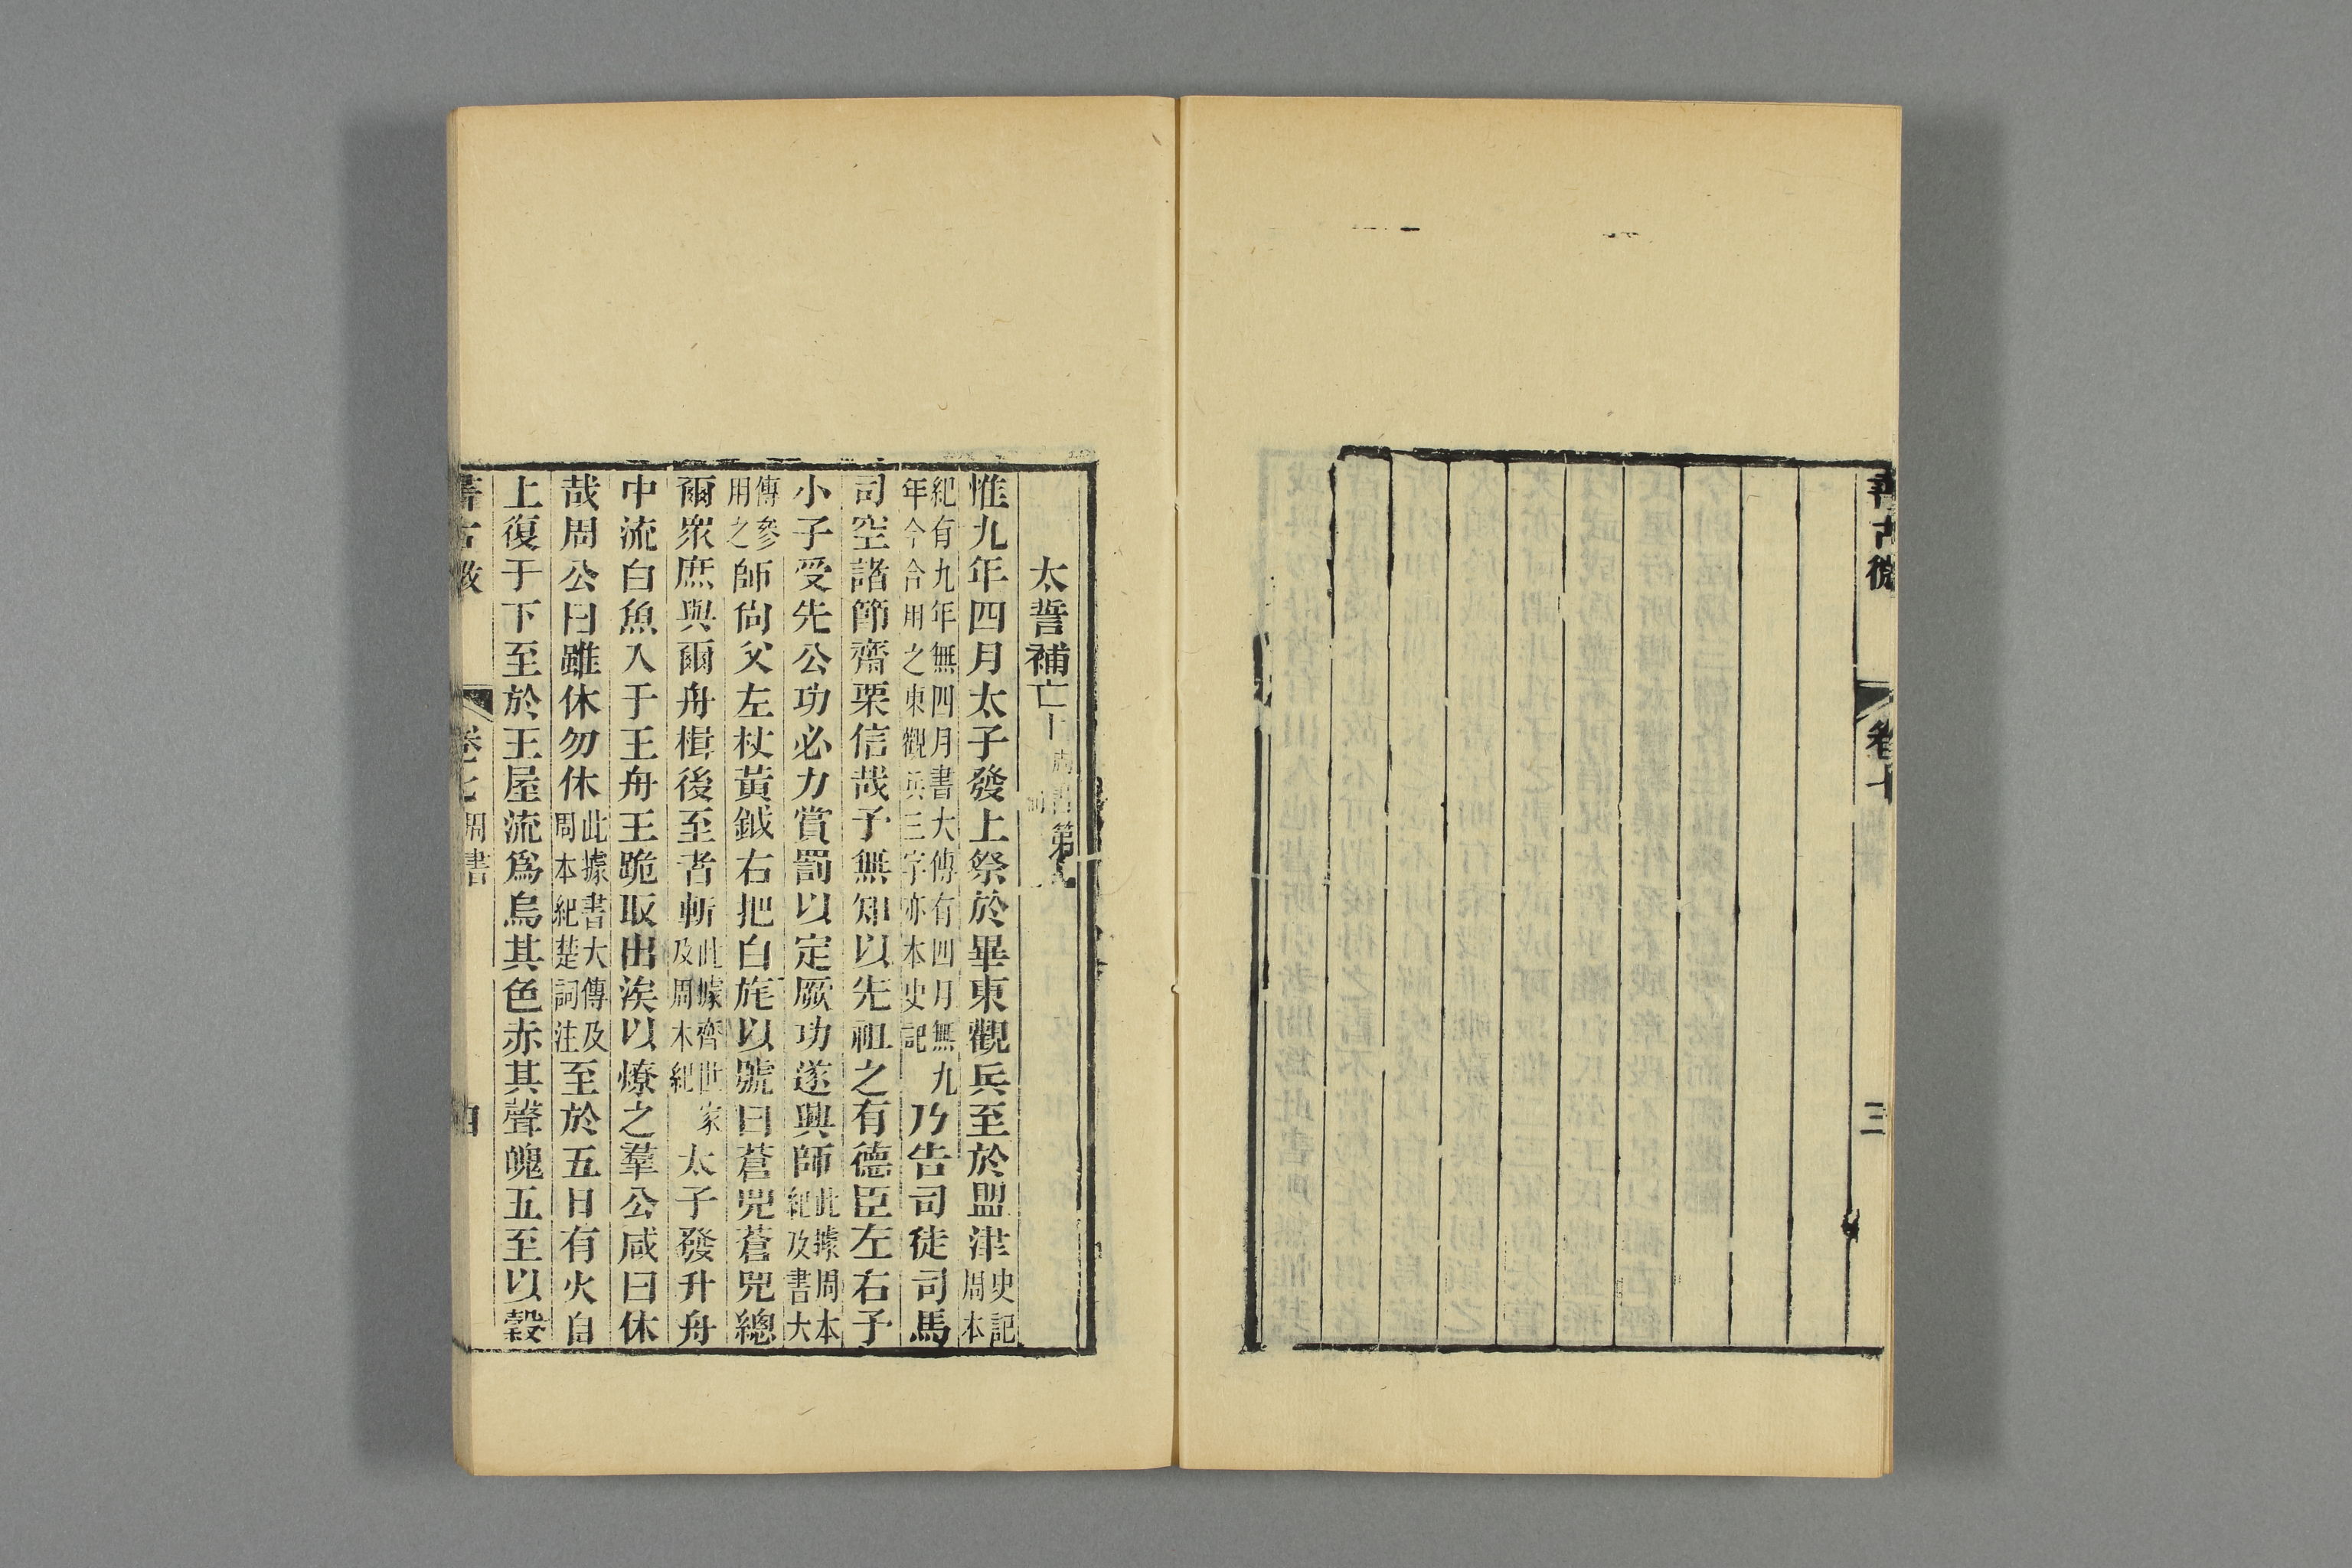 書古微
卷七
三
太誓補亡上
第
惟九年四月太子發上祭於畢東觀兵至於盟津史記周本
紀有九年無四月書大傳有四月無九年今合用之東觀兵三字亦本史記乃告司徒司馬
司空諸節齊栗信哉予無知以先祖之有德臣左右予
小子受先公功必力賞罰以定厥功遂興師此據周本紀及書大
傳參用之師尙父左杖黃鉞右把白旄以號曰蒼兕蒼兕總
爾衆庶與爾舟楫後至者斬此據齊世家及周本紀太子發升舟
中流白魚入于王舟王跪取出涘以燎之羣公咸曰休
哉周公曰雖休勿休此據書大傳及周本紀楚詞注至於五日有火自
上復于下至於王屋流爲烏其色赤其聲魄五至以穀
書古微
卷七
周書
四